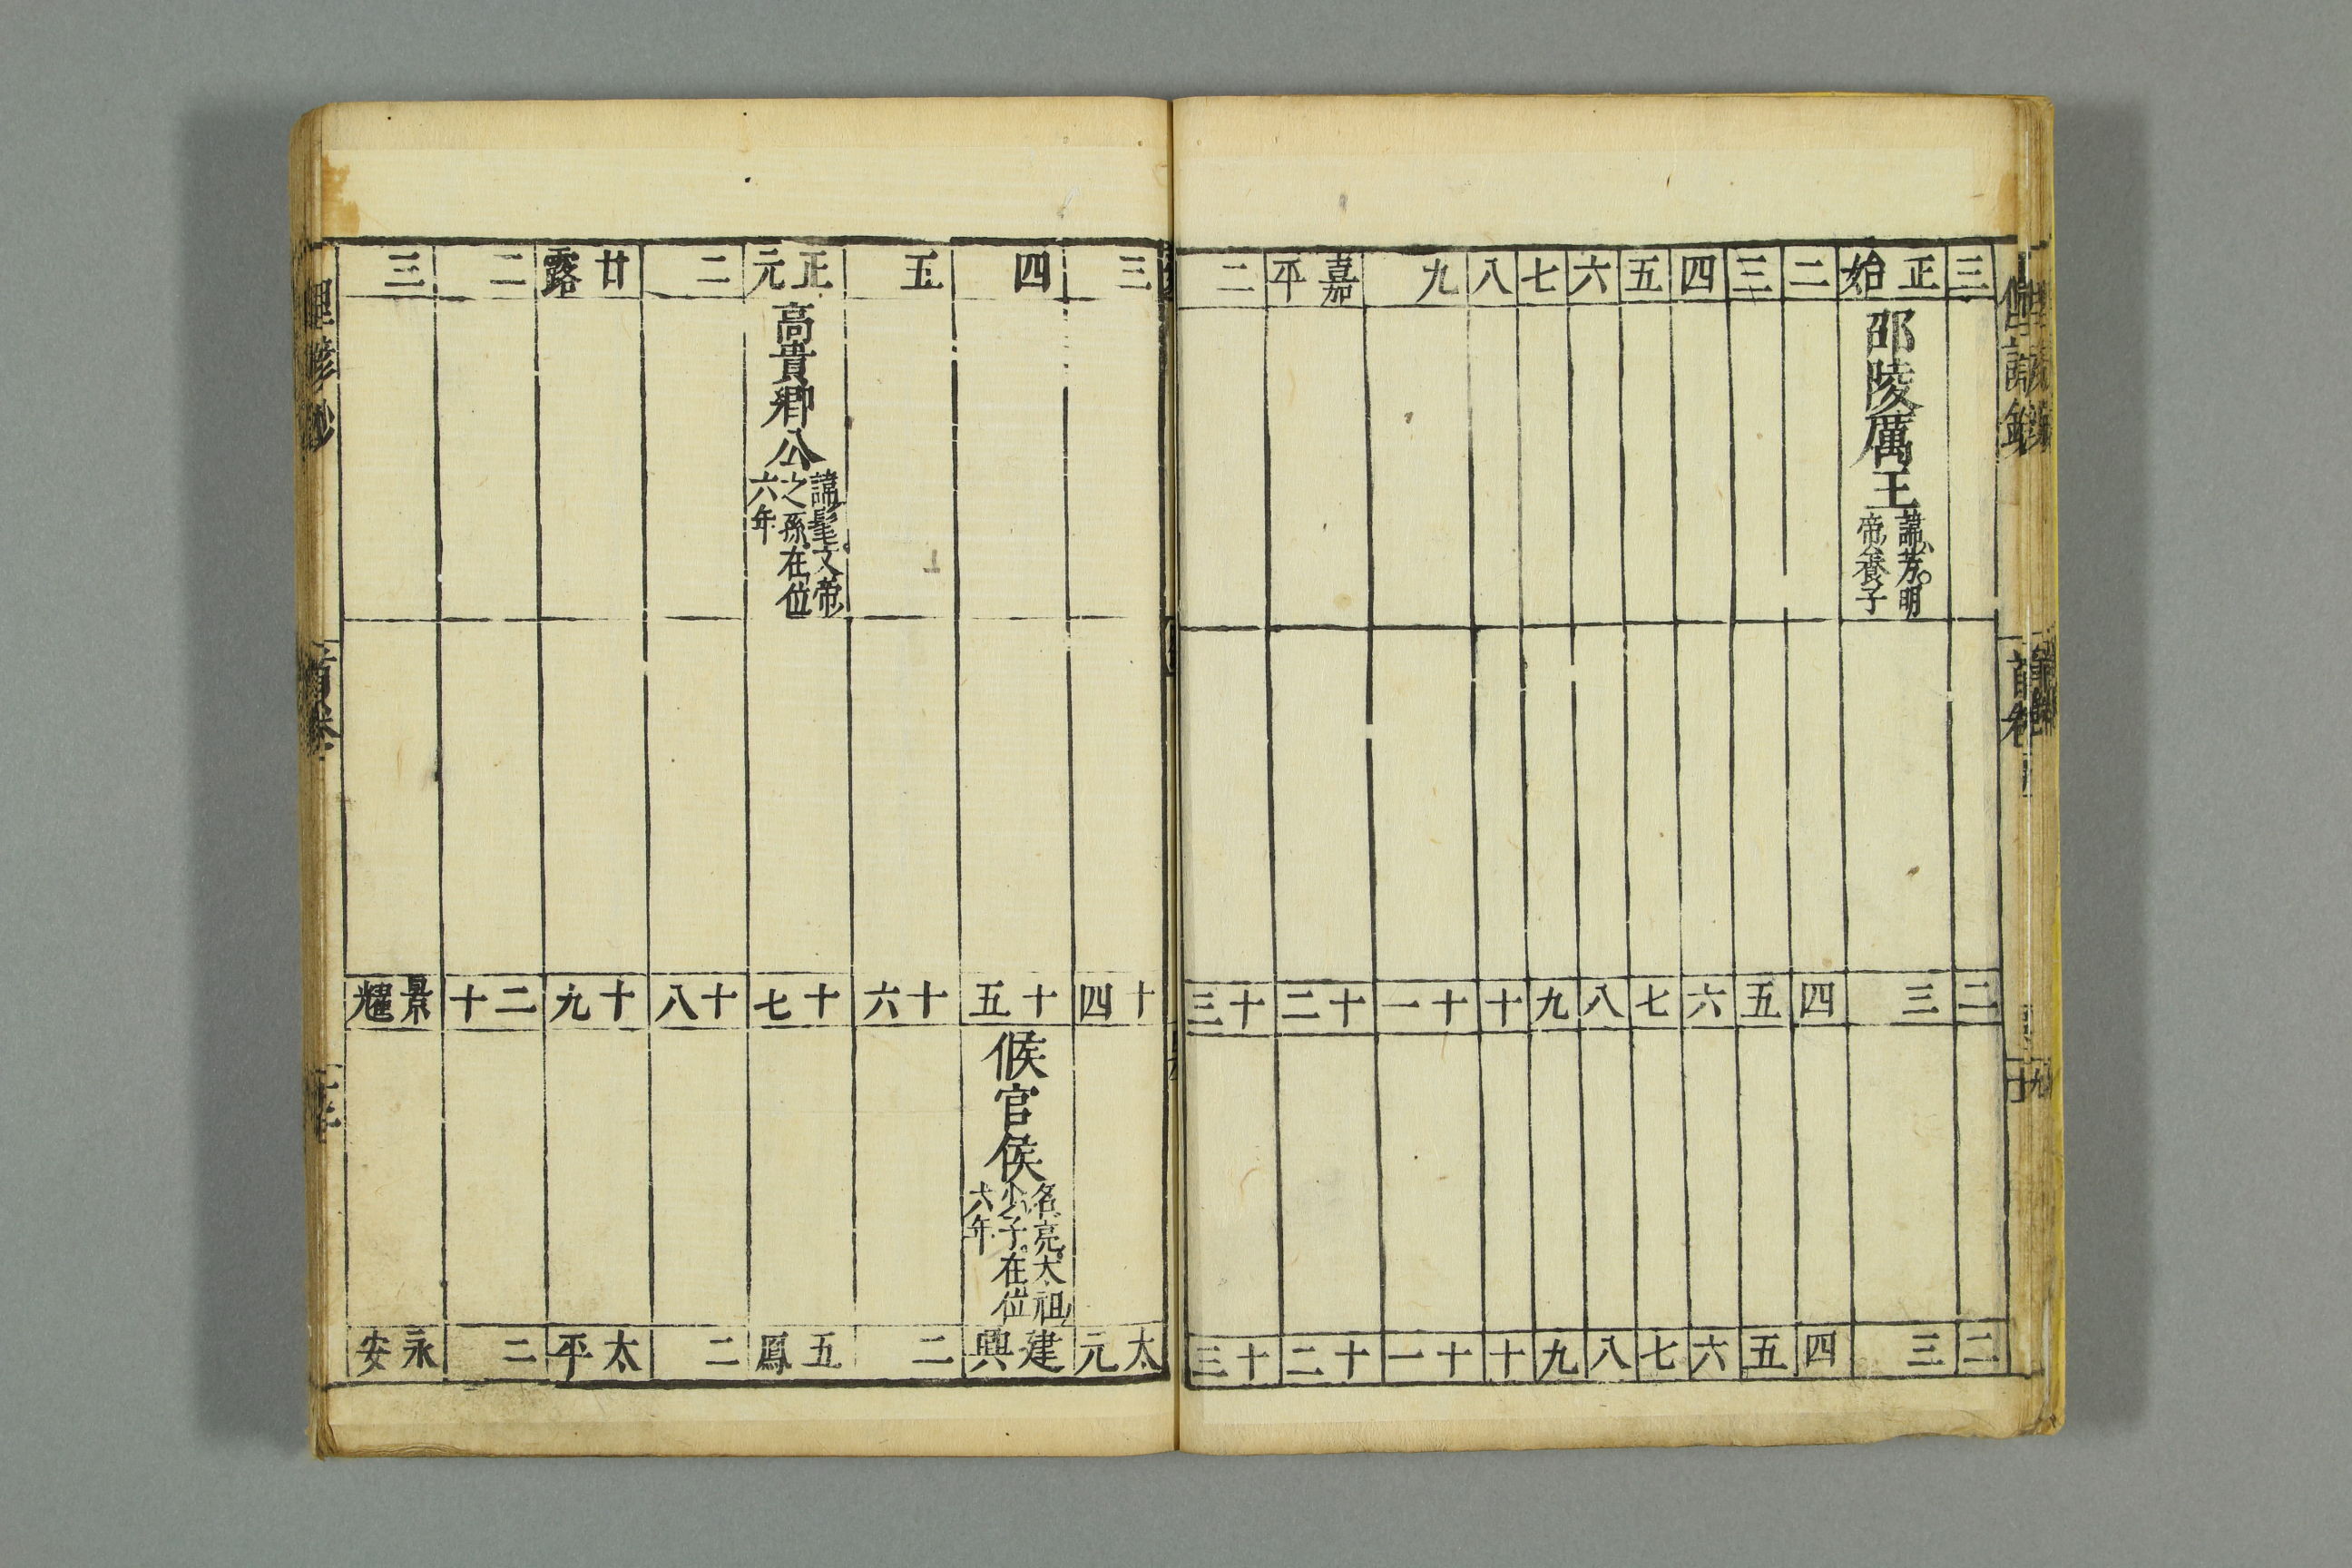 三
正始
二
三
四
五
六
七
八
九
嘉平
二
邵陵厲王
諱芳。明
帝養子
二
三
四
五
六
七
八
九
十
十一
十二
十三
二
三
四
五
六
七
八
九
十
十一
十二
十三
三
四
五
正元
二
甘露
二
三
高貴鄉公
諱髦。文帝
之孫。在位
六年
十四
十五
十六
十七
十八
十九
二十
景耀
候官侯
名亮。大祖
少子。在位
六年
太元
建興
二
五鳳
二
太平
二
永安
首卷